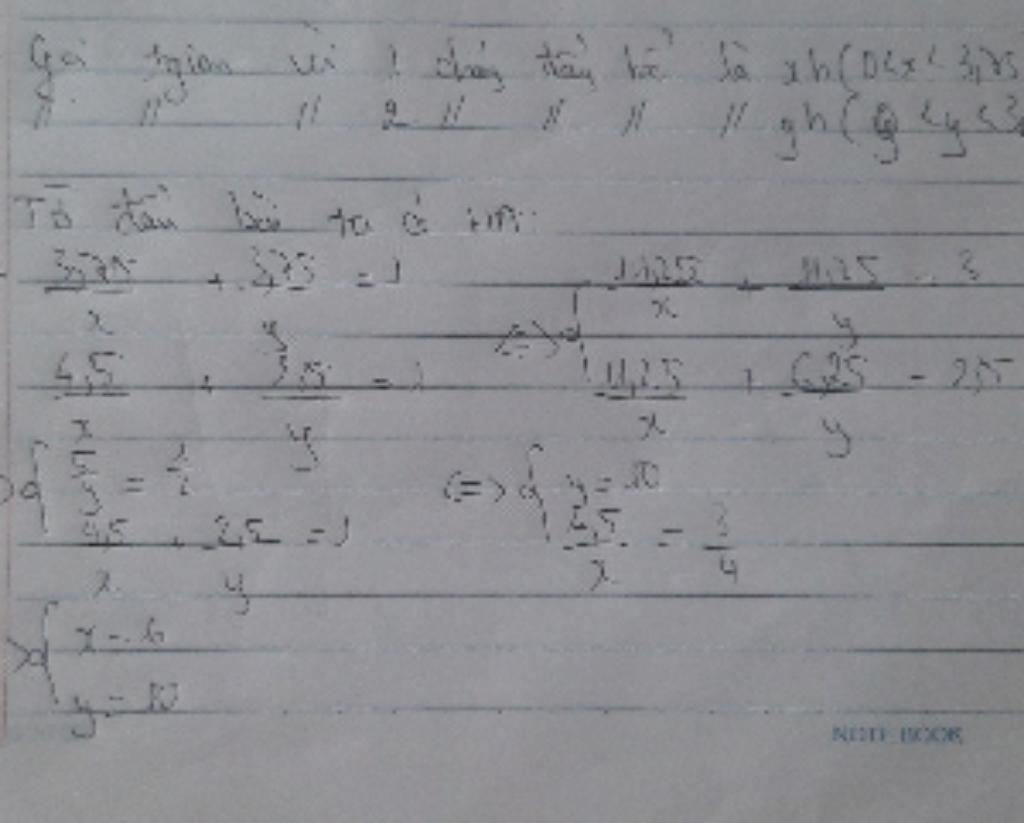 Gọi tgian vòi 1 chảy đầy bể là xh (0<x<3,75
// // // 2 // // // // yh ( <y<3,
Từ đầu bài ta có HPT:
3,75/x + 3,75/y = 1 <=> { 11,25/x + 11,25/y = 3
4,5/x + 2,5/y = 1 11,25/x + 6,25/y = 2,5
{ 5/y = 1/2 <=> { y = 10
4,5/x + 2,5/y = 1 4,5/x = 3/4
{ x = 6
y = 10
NOTE BOOK